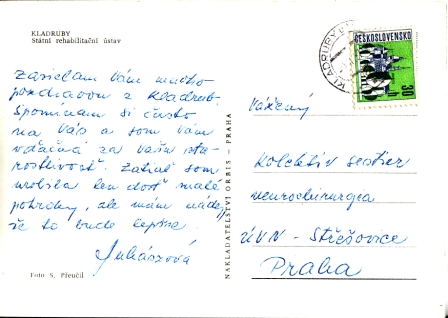 KLADRUBY
Státní rehabilitační ústav
Zasielam Vám mnoho
pozdravov z Kladrub.
Spomínam si často
na Vás a som Vám
vďačná za Vašu sta-
rostlivosť. Zatiaľ som
urobila len dosť malé
pokroky, ale mám nádej
že to bude lepšie.
Juhászová
Foto S. Přeučil
NAKLADATELSTVÍ ORBIS - PRAHA
KLADRUBY
ČESKOSLOVENSKO
30
Vážený
Kolektív sestier
neurochirurgia
ÚVN - Střešovice
Praha